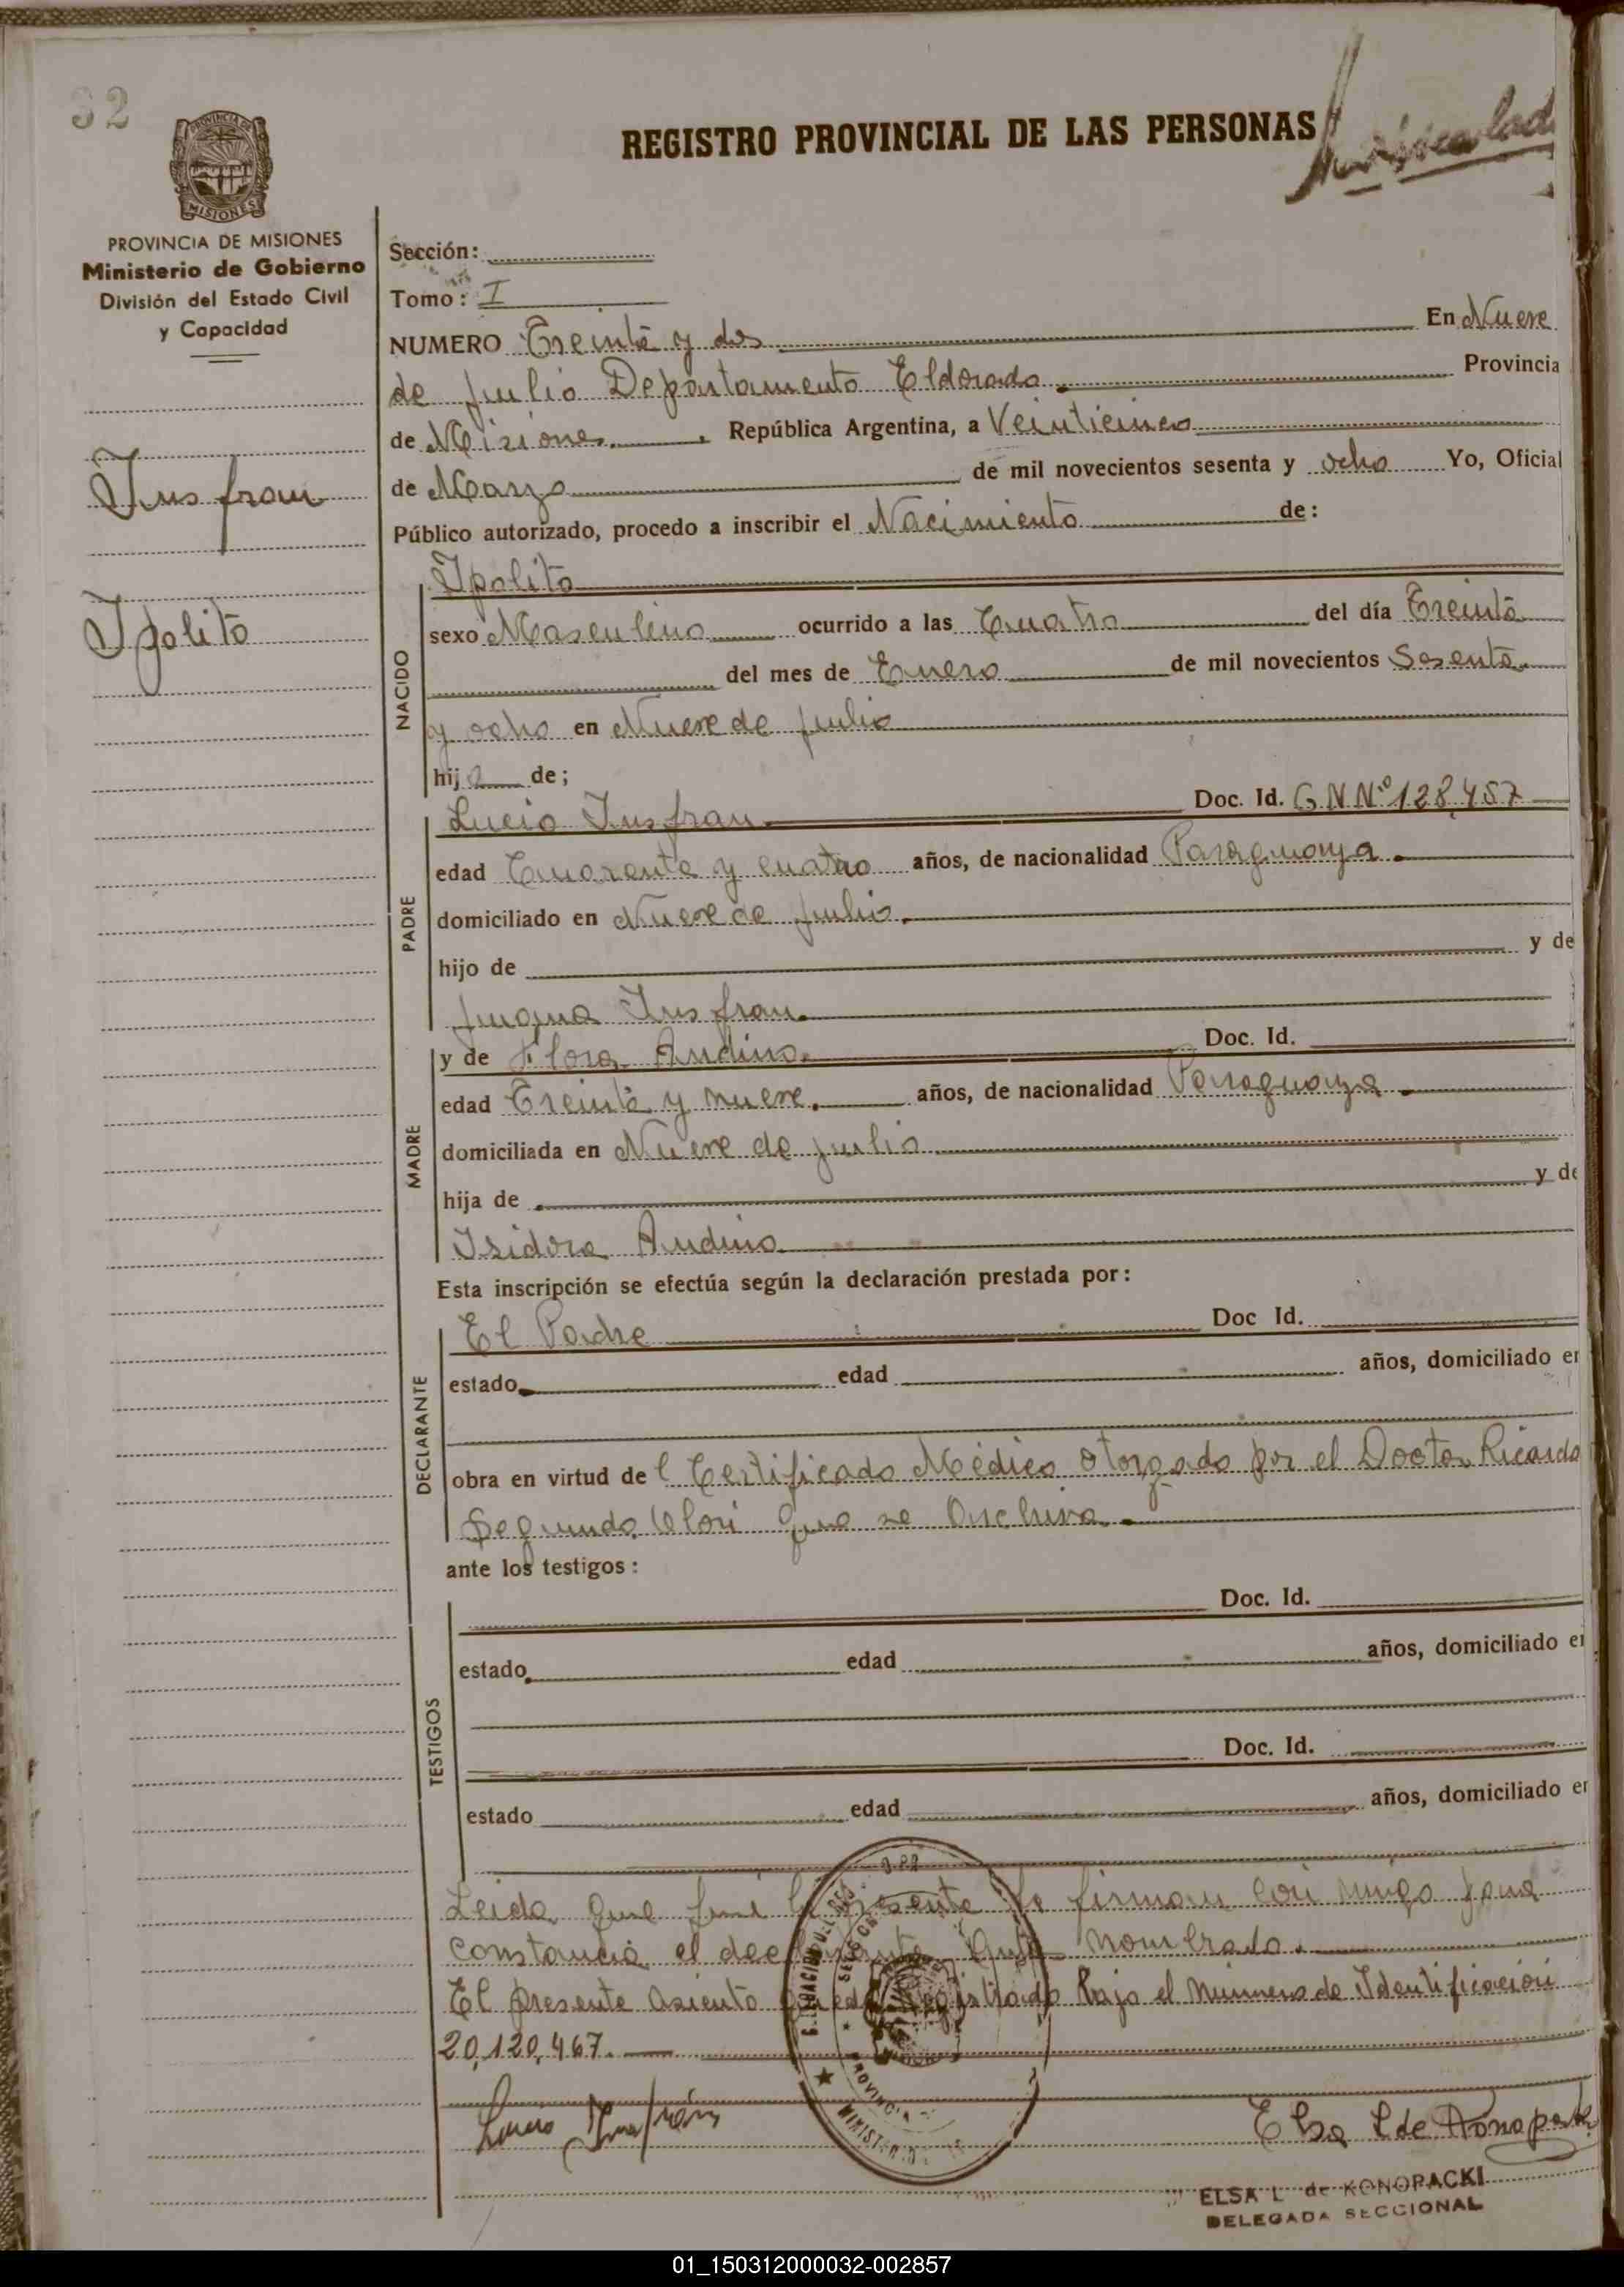 32
REGISTRO PROVINCIAL DE LAS PERSONAS
PROVINCIA DE
MISIONES
PROVINCIA DE MISIONES
Ministerio de Gobierno
División del Estado Civil
y Capacidad
Insfran
Ipolito
Sección:
Tomo: I
NUMERO Treinta y dos En Nueve
de Julio Departamento Eldorado. Provincia
de Misiones. República Argentina, a Veinticinco
de Marzo de mil novecientos sesenta y ocho Yo, Oficial
Público autorizado, procedo a inscribir el Nacimiento de:
NACIDO
Ipolito
sexo Masculino ocurrido a las Cuatro del día Treinta
del mes de Enero de mil novecientos Sesenta
y ocho en Nueve de Julio
hijo de;
PADRE
Lucio Insfran. Doc. Id. G.N Nº 128.457
edad Cuarenta y cuatro años, de nacionalidad Paraguaya.
domiciliado en Nueve de Julio.
hijo de y de
Juana Insfran.
MADRE
y de Flora Andino. Doc. Id.
edad Treinta y nueve. años, de nacionalidad Paraguaya.
domiciliada en Nueve de Julio
hija de y de
Isidora Andino
Esta inscripción se efectúa según la declaración prestada por:
DECLARANTE
El Padre Doc Id.
estado edad años, domiciliado en
obra en virtud del Certificado Médico otorgado por el Doctor Ricardo
Segundo que se Archiva.
ante los testigos:
TESTIGOS
Doc. Id.
estado edad años, domiciliado en
Doc. Id.
estado edad años, domiciliado en
Leida que fué la presente la firman con migo para
constancia el declarante ante nombrado.
El presente asiento queda registrado bajo el número de Identificación
20,120,467.
Lucio Insfrán
Elsa L de Konopacki
ELSA L de KONOPACKI
DELEGADA SECCIONAL
01_150312000032-002857